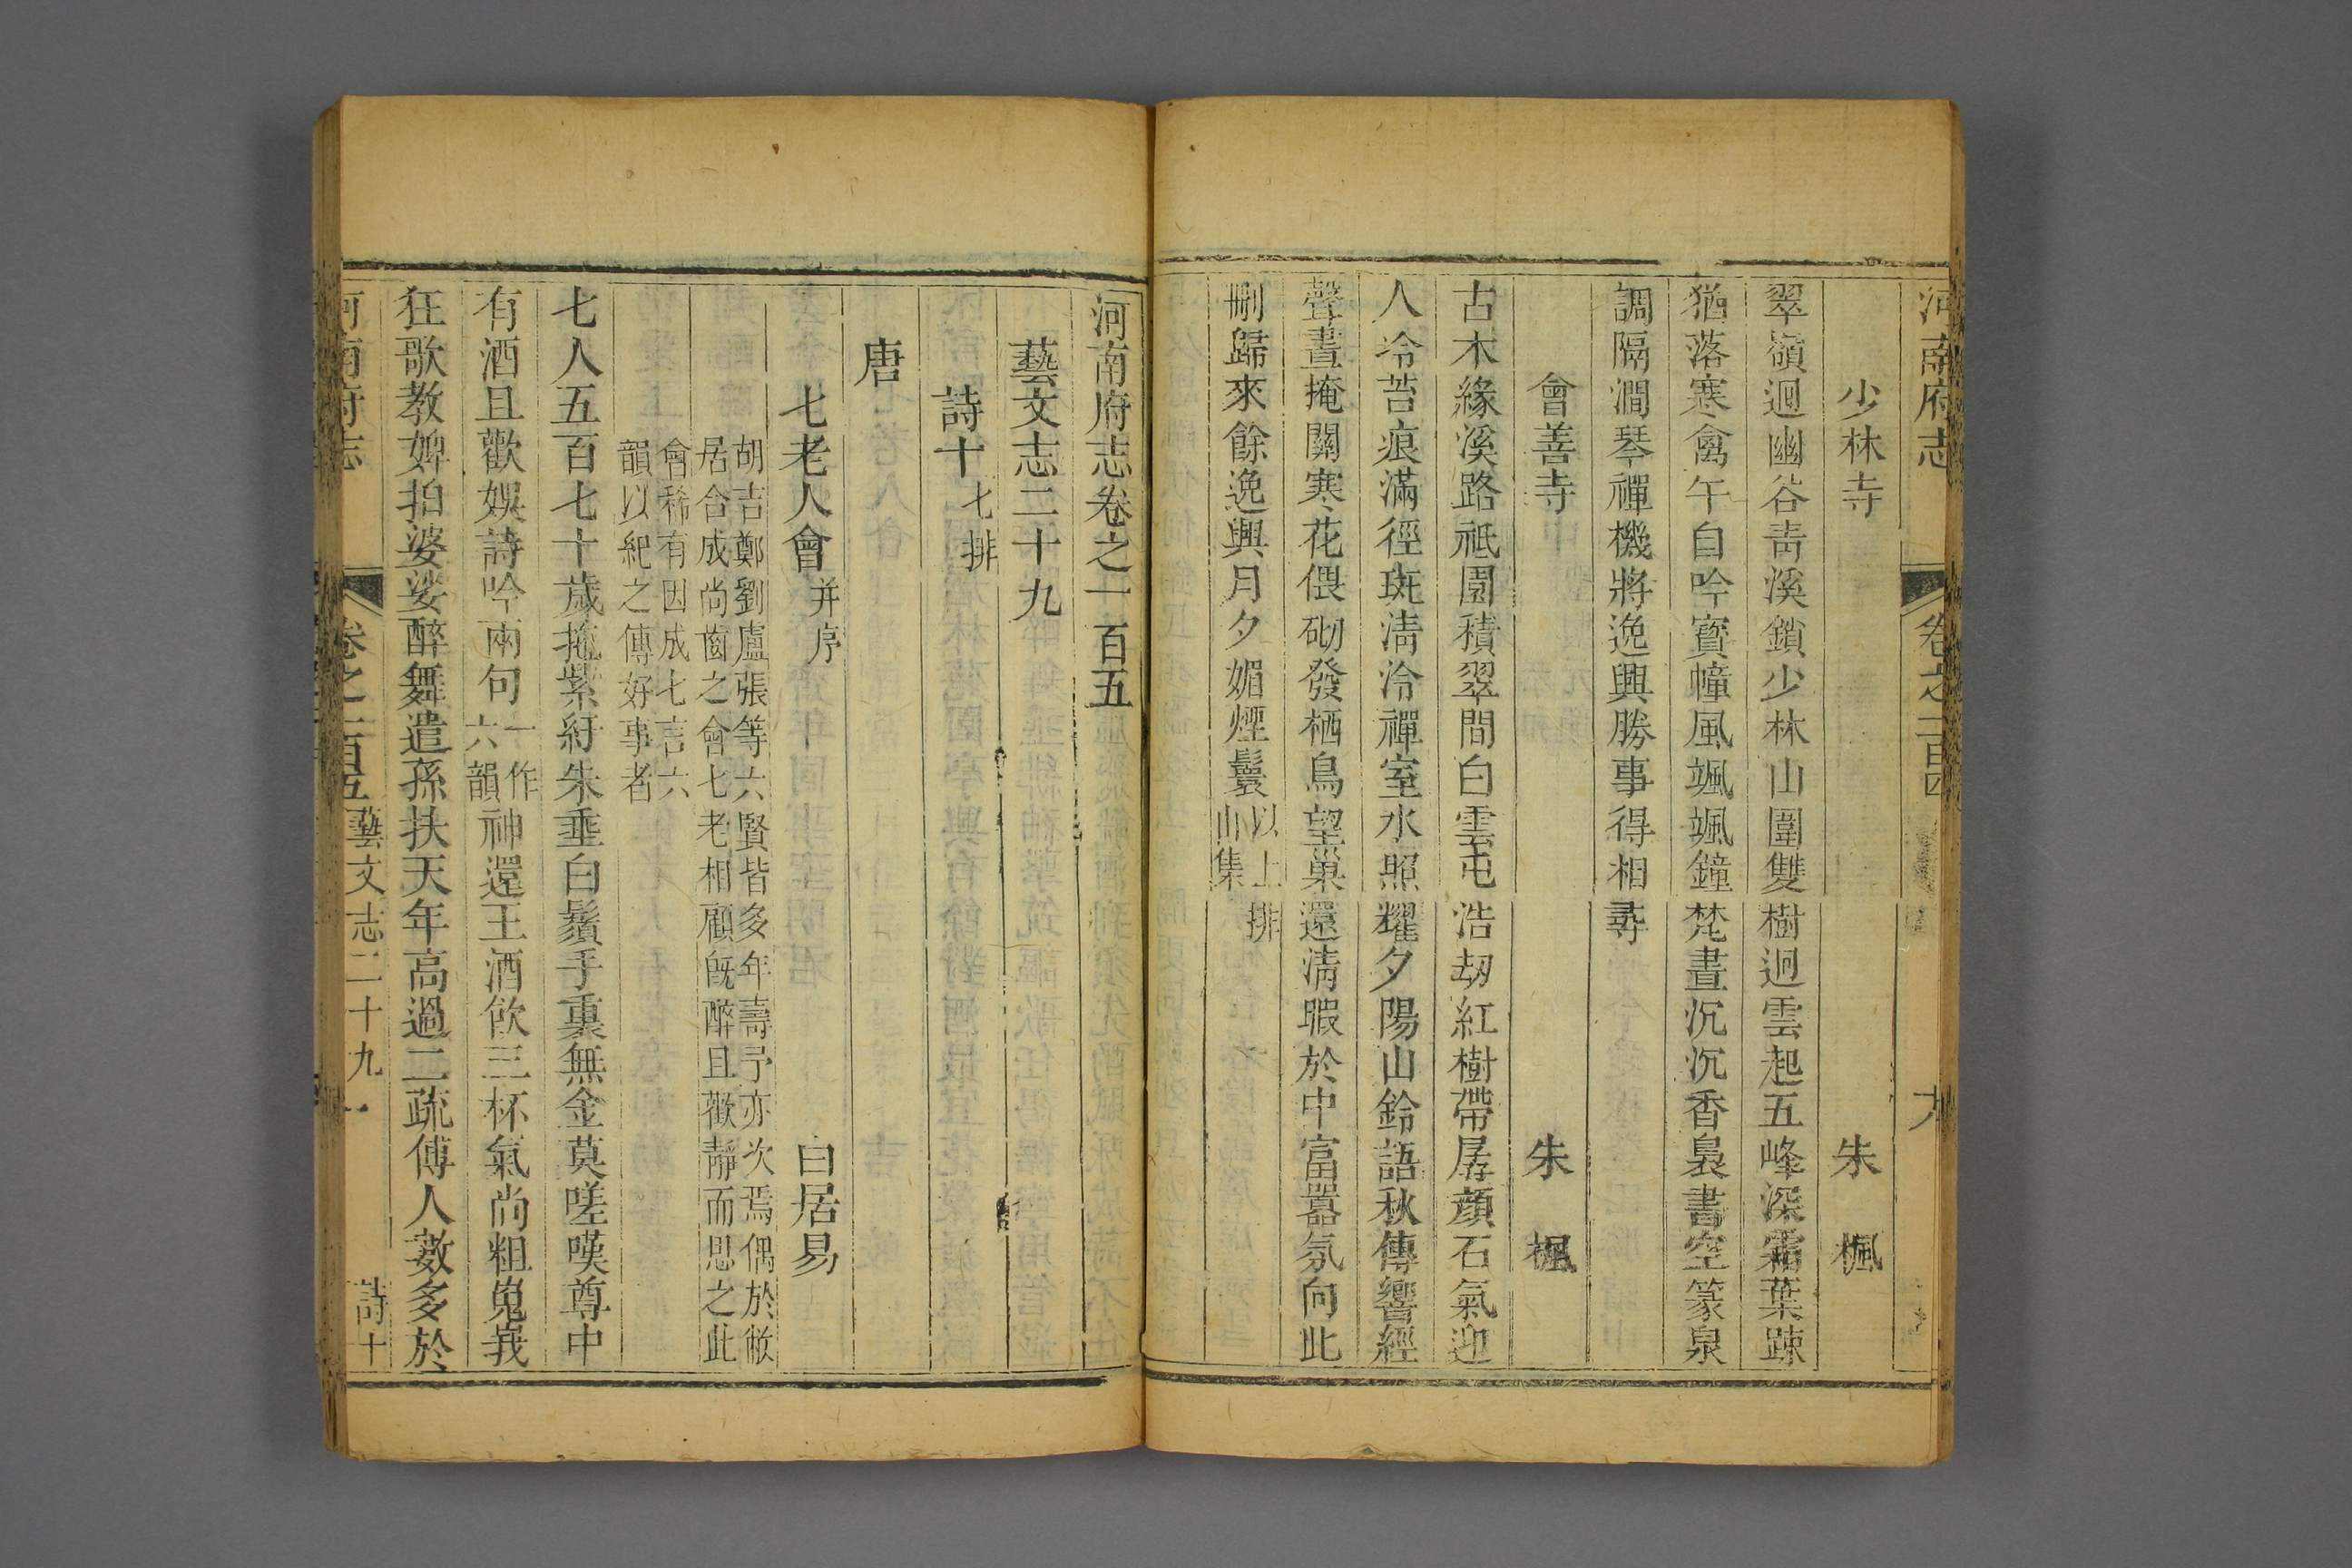 河南府志 卷之一百四
少林寺 朱楓
翠嶺迴幽谷靑溪鎖少林山圍雙樹迥雲起五峰深霜葉踈
猶落寒禽午自吟寶幢風颯颯鐘梵晝沉沉香裊書空篆泉
調隔澗琴禪機將逸興勝事得相尋
會善寺 朱楓
古木緣溪路祇園積翠間白雲屯浩刼紅樹帶孱顔石氣迎
人冷苔痕滿徑斑淸泠禪室水照耀夕陽山鈴語秋傳響經
聲晝掩關寒花偎砌發栖鳥望巢還淸暇於中富囂氛向此
刪歸來餘逸興月夕媚煙鬟 以上排
山集
河南府志卷之一百五
藝文志二十九
詩十 七排
唐
七老人會 并序 白居易
胡吉鄭劉盧張等六賢皆多年壽予亦次焉偶於敝
居合成尚齒之會七老相顧旣醉且歡靜而思之此
會稀有因成七言六
韻以紀之傳好事者
七人五百七十歲拖紫紆朱垂白鬚手裏無金莫嗟嘆尊中
有酒且歡娛詩吟兩句 一作
六韻 神還王酒飮三杯氣尚粗嵬峩
狂歌教婢拍婆娑醉舞遣孫扶天年高過二疏傅人數多於
河南府志 卷之一百五 藝文志二十九 一 詩十